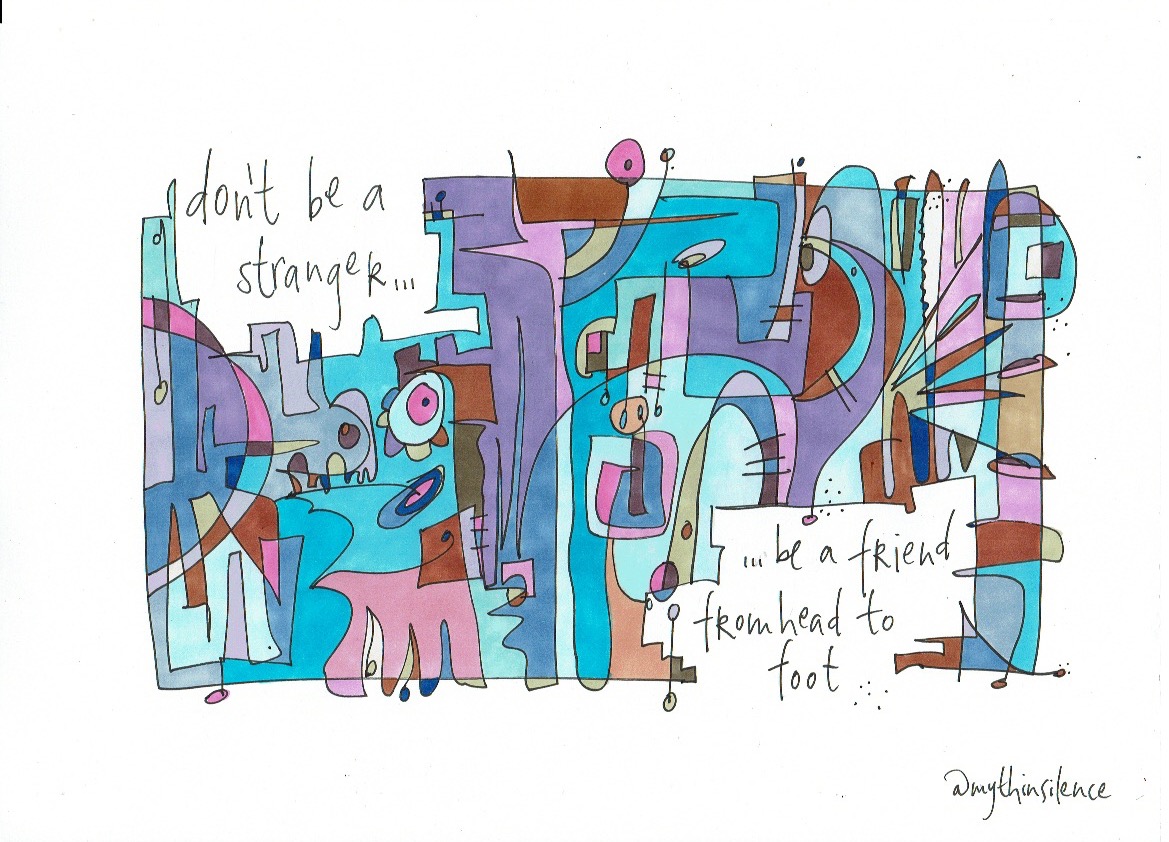 don't be a
stranger...
...be a friend
from head to
foot...
@mythinsilence